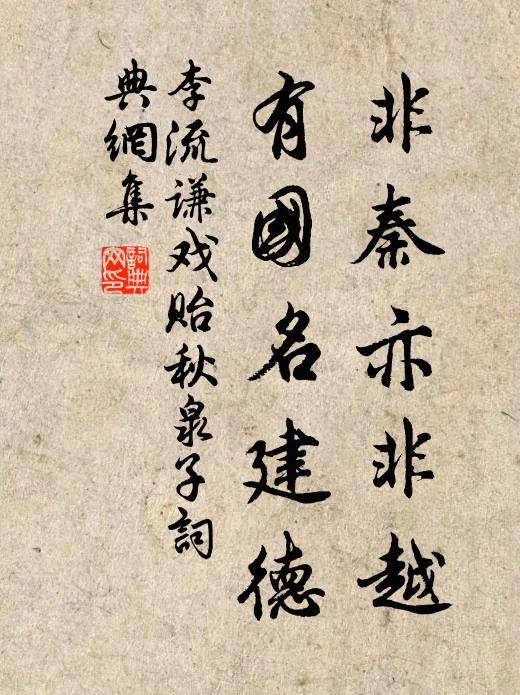 非秦亦非越
有國名建德
李流谦戏贻秋泉子詞
典網集
詞典
网印